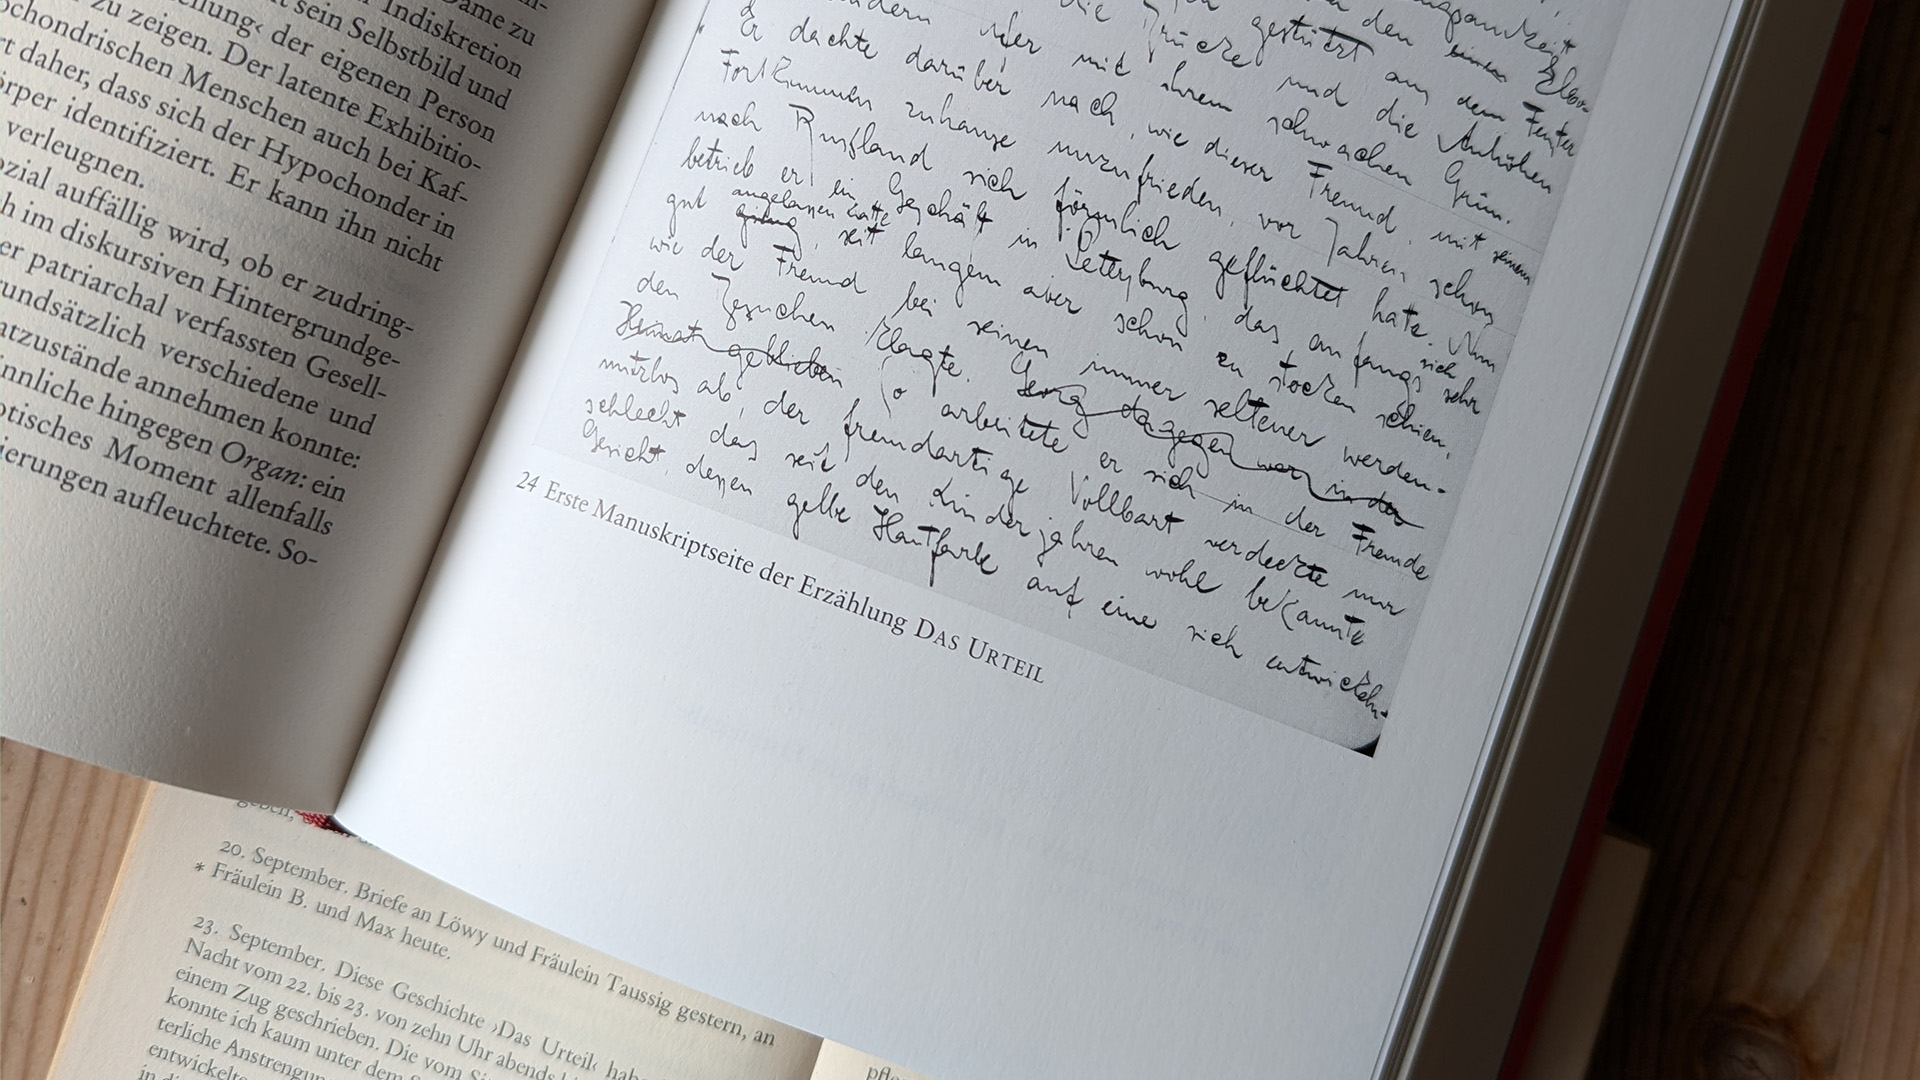 Dame zu
Indiskretion
sein Selbstbild und
‹ der eigenen Person
zu zeigen. Der latente Exhibitio-
chondrischen Menschen auch bei Kaf-
daher, dass sich der Hypochonder in
identifiziert. Er kann ihn nicht
verleugnen.
auffällig wird, ob er zudring-
im diskursiven Hintergrundge-
patriarchal verfassten Gesell-
verschiedene und
annehmen konnte:
hingegen Organ: ein
Moment allenfalls
aufleuchtete. So-
den einen Ellbo-
gestützt aus dem Fenster
die Brücke und die Anhöhen
mit ihrem schwachen Grün.
Er dachte darüber nach, wie dieser Freund, mit seinem
Fortkommen zuhause unzufrieden, vor Jahren schon
nach Rußland sich förmlich geflüchtet hatte. Nun
betrieb er ein Geschäft in Petersburg, das anfangs sich sehr
gut gieng angelassen hatte, seit langem aber schon zu stocken schien,
wie der Freund bei seinen immer seltener werden-
den Besuchen klagte. Georg dagegen war in der
Heimat geblieben So arbeitete er sich in der Fremde
nutzlos ab, der fremdartige Vollbart verdeckte nur
schlecht das seit den Kinderjahren wohl bekannte
Gesicht, dessen gelbe Hautfarbe auf eine sich entwickeln-
24 Erste Manuskriptseite der Erzählung DAS URTEIL
geben,
20. September. Briefe an Löwy und Fräulein Taussig gestern, an
* Fräulein B. und Max heute.
23. September. Diese Geschichte ›Das Urteil‹ habe
Nacht vom 22. bis 23. von zehn Uhr abends
einem Zug geschrieben. Die vom
konnte ich kaum unter dem
terliche Anstrengung
entwickelte